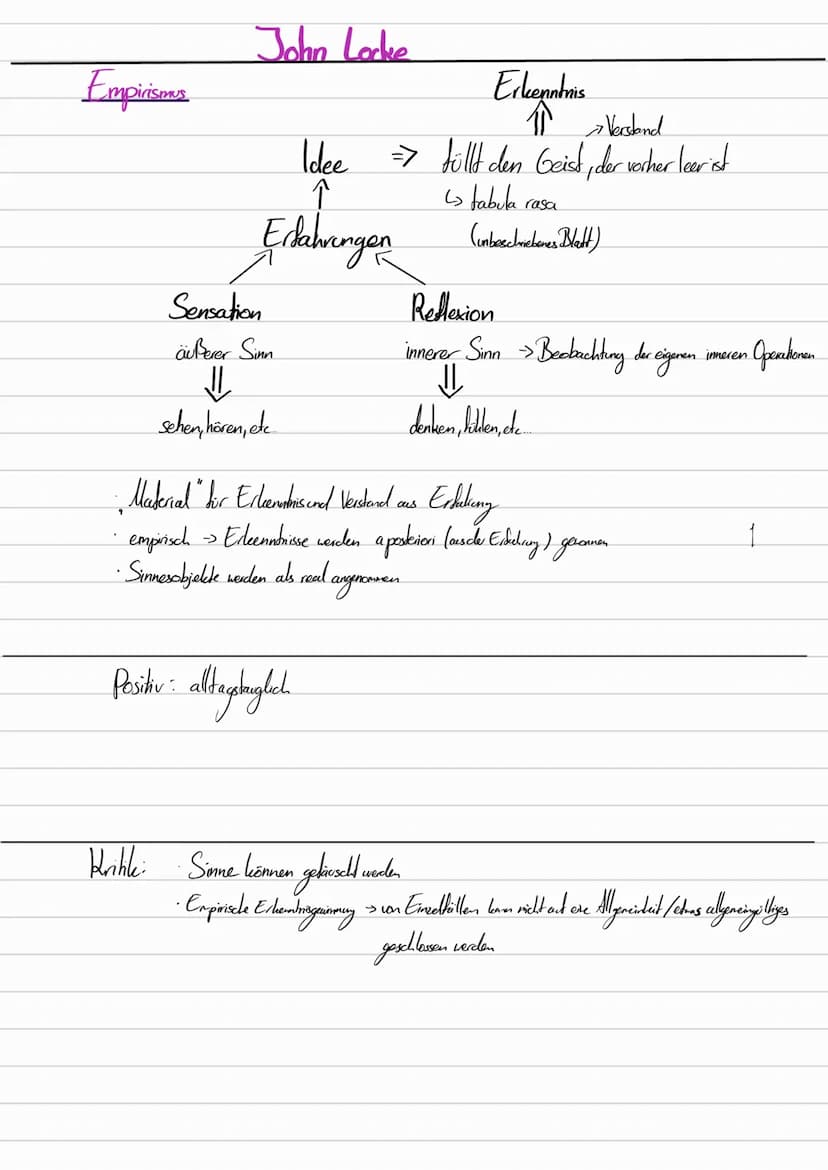 John Locke
Empirismus
Erkenntnis
⇑ → Verstand
Idee => füllt den Geist, der vorher leer ist
↑ ↳ tabula rasa
Erfahrungen (unbeschriebenes Blatt)
Sensation Reflexion
äußerer Sinn innerer Sinn → Beobachtung der eigenen inneren Operationen
⇓ ⇓
sehen, hören, etc denken, fühlen, etc...
· „Material" für Erkenntnis und Verstand aus Erfahrung
· empirisch → Erkenntnisse werden a posteriori (aus der Erfahrung) gewonnen
· Sinnesobjekte werden als real angenommen
Positiv: alltagstauglich
Kritik: · Sinne können getäuscht werden
· Empirische Erkenntnisgewinnung → von Einzelfällen kann nicht auf eine Allgemeinheit / etwas allgemeingültiges
geschlossen werden